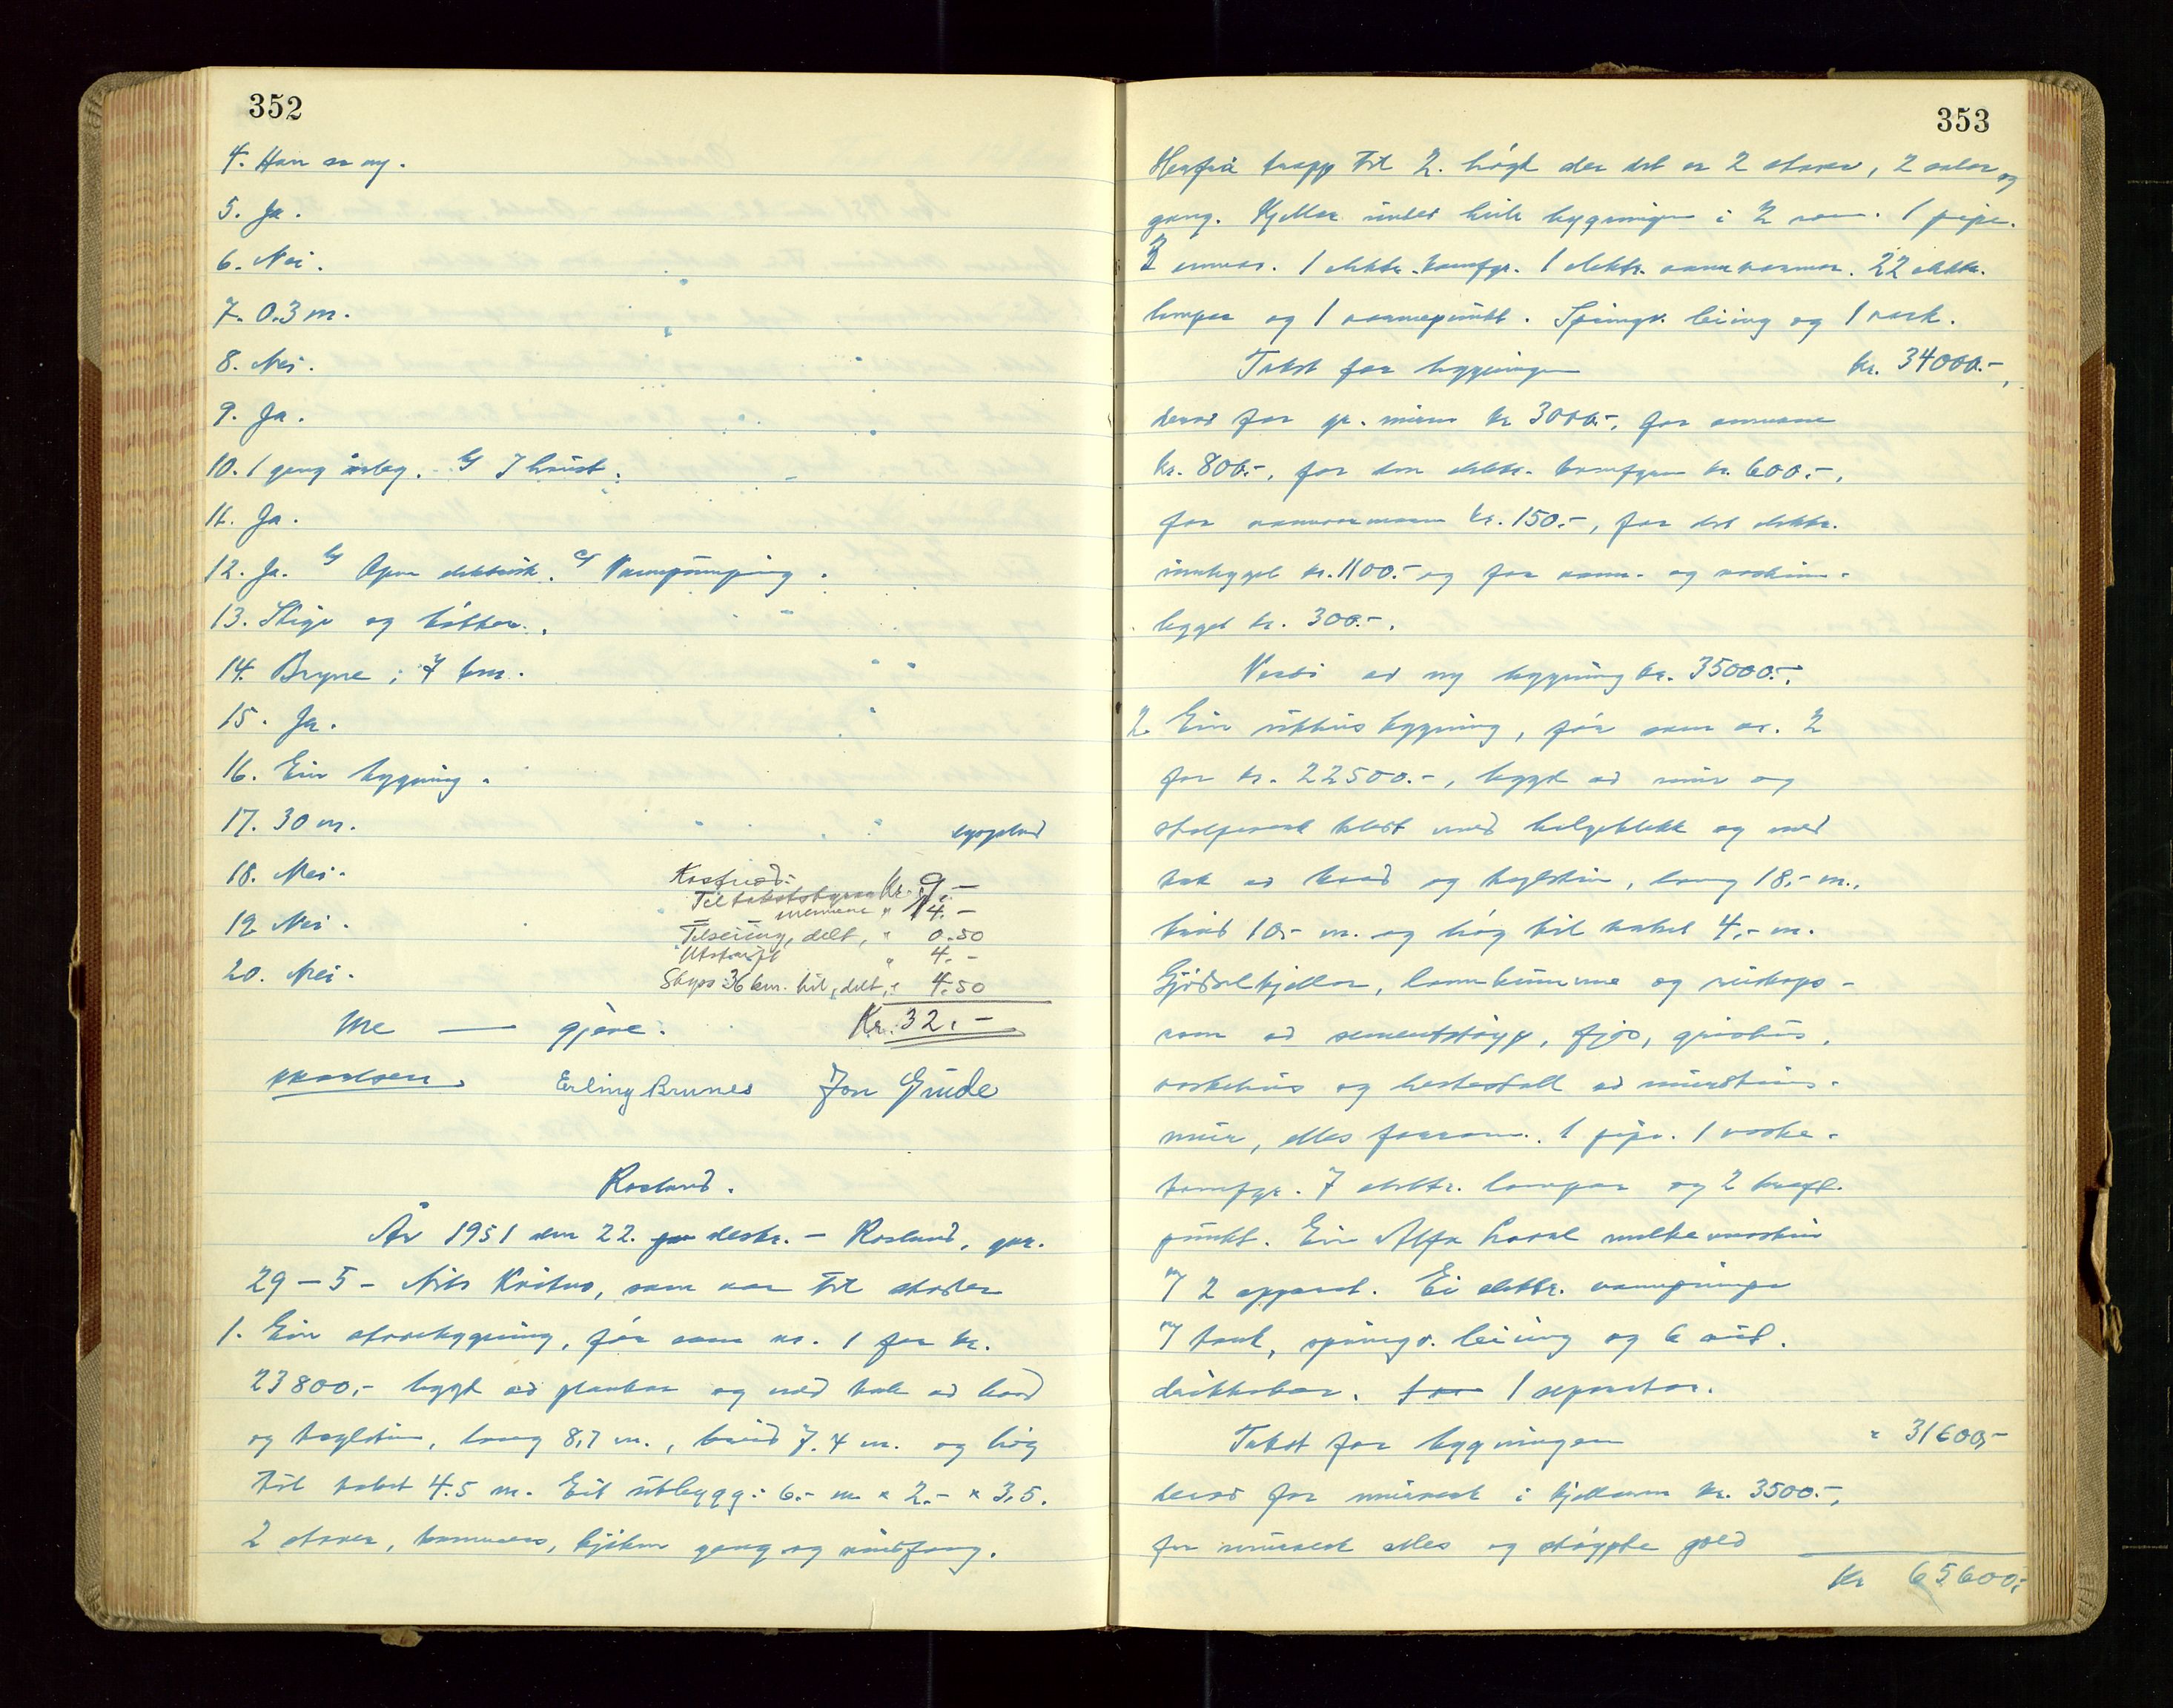 352
4. Han er ny.
5. Ja.
6. Nei.
7. 0.3 m.
8. Nei.
9. Ja.
10. 1 gang årleg. b/ I haust.
11. Ja.
12. Ja. b/ Open elektrisk. c/ Vasspumping.
13. Stige og bøtter.
14. Bryne; 7 km.
15. Ja.
16. Ein bygning.
17. 30 m.
18. Nei.
19. Nei.
20. Nei.
Kostnad: oppgjord
Til takstskrivar Kr. 9.-
— mennene " 14.-
Telseiing, delt, " 0.50
Utskrift " 4.-
Skyss 36 km. bil, delt, " 4.50
Kr. 32.-
Me — gjeve.
Erling Brunes Jon Gjude
Rosland.
År 1951 den 22. desbr. - Rosland, gnr.
29 - 5 - Nils Kvitno, som var til stades
1. Ein stovebygning, før som nr. 1 for kr.
23800,- bygd av plankar og med tak av bord
og teglstein, lang 8,7 m., breid 7.4 m. og høg
til taket 4.5 m. Eit utbygg: 6.- m × 2.- × 3,5.
2 stover, kammers, kjøken gang og vindfang.
353
Herfrå trapp til 2. høgd der det er 2 stover, 2 soler og
gang. Kjellar under heile bygningen i 2 rom. 1 pipe.
3 omnar. 1 elektr. komfyr. 1 elektr. vannvarmar. 22 elektr.
lampar og 1 varmepunkt. Springv. leiing og 1 vask.
Takst for bygningen kr. 34000.-,
derav for gr. muren kr 3000.-, for omnane
kr. 800.-, for den elektr. komfyren kr. 600.-,
for vannvarmaren kr. 150.-, for det elektr.
innlegget kr. 1100.- og for vann- og vaskinn-
legget kr. 300.-.
Verdi av ny bygning kr. 35000.-.
2. Ein uthusbygning, før som nr. 2
for kr. 22500.-, bygd av mur og
stolpeverk kledt med bølgeblekk og med
tak av bord og teglstein, lang 18,- m.,
breid 10,- m. og høg til taket 4,- m.
Gjødselkjellar, landkumme og reiskaps-
rom av sementstøyp, fjøs, grishus,
vaskehus og hestestall av murstein-
mur, elles forrom. 1 pipe. 1 vaske-
komfyr. 7 elektr. lampar og 2 kraft-
punkt. Ein Alfa Laval mølkemaskin
m/ 2 apparat. Ei elektr. vannpumpe
m/ tank, springv. leiing og 6
drikkekar. 1 separator.
Takst for bygningen " 31600,-
derav for murverk i kjellaren kr. 3500.-,
for murverk elles og støypte golv
Kr 65600,-